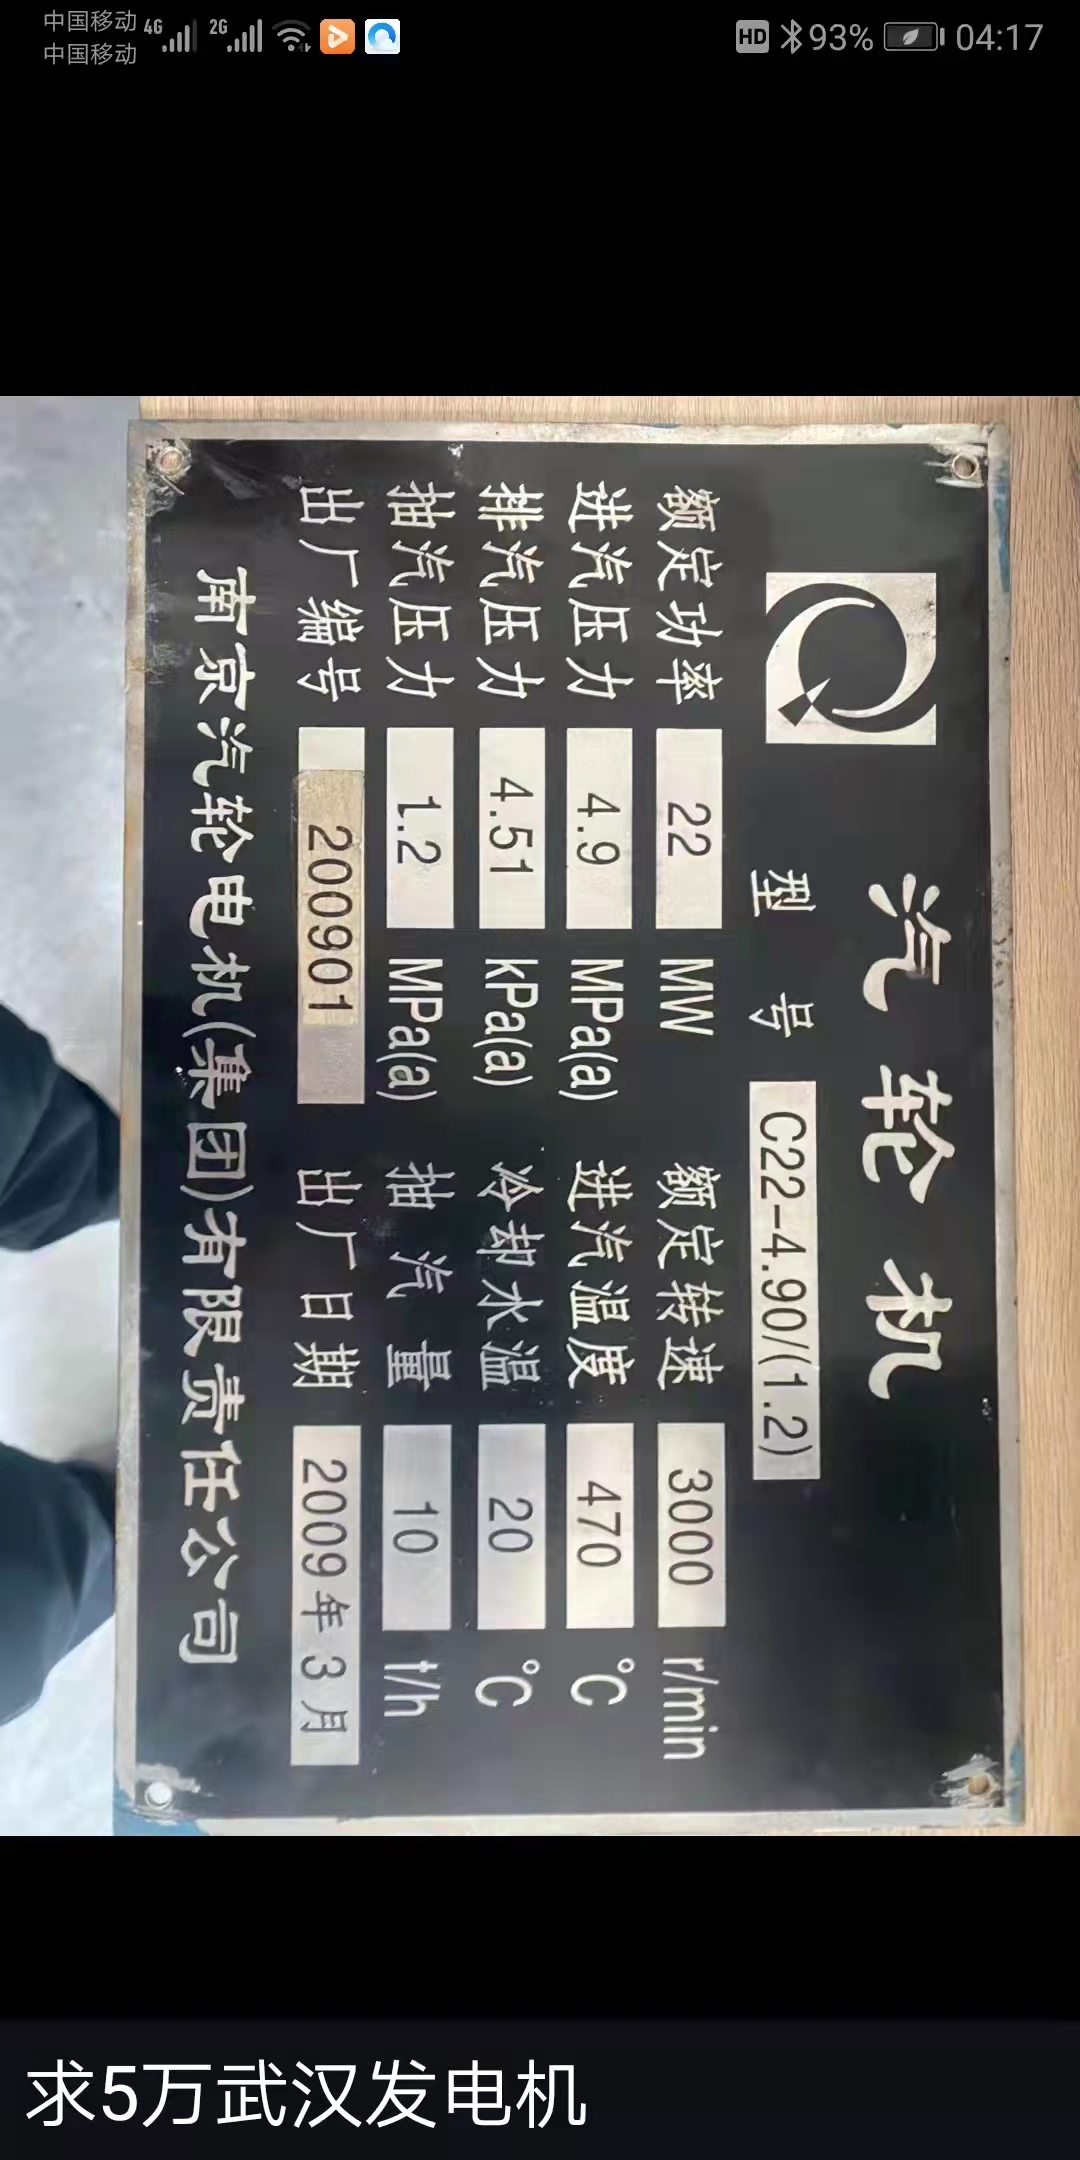 中国移动 4G 2G HD 93% 04:17
中国移动
汽轮机
型号 C22-4.90/(1.2)
额定功率 22 MW 额定转速 3000 r/min
进汽压力 4.9 MPa(a) 进汽温度 470 ℃
排汽压力 4.51 kPa(a) 冷却水温 20 ℃
抽汽压力 1.2 MPa(a) 抽汽量 10 t/h
出厂编号 200901 出厂日期 2009年3月
南京汽轮电机(集团)有限责任公司
求5万武汉发电机